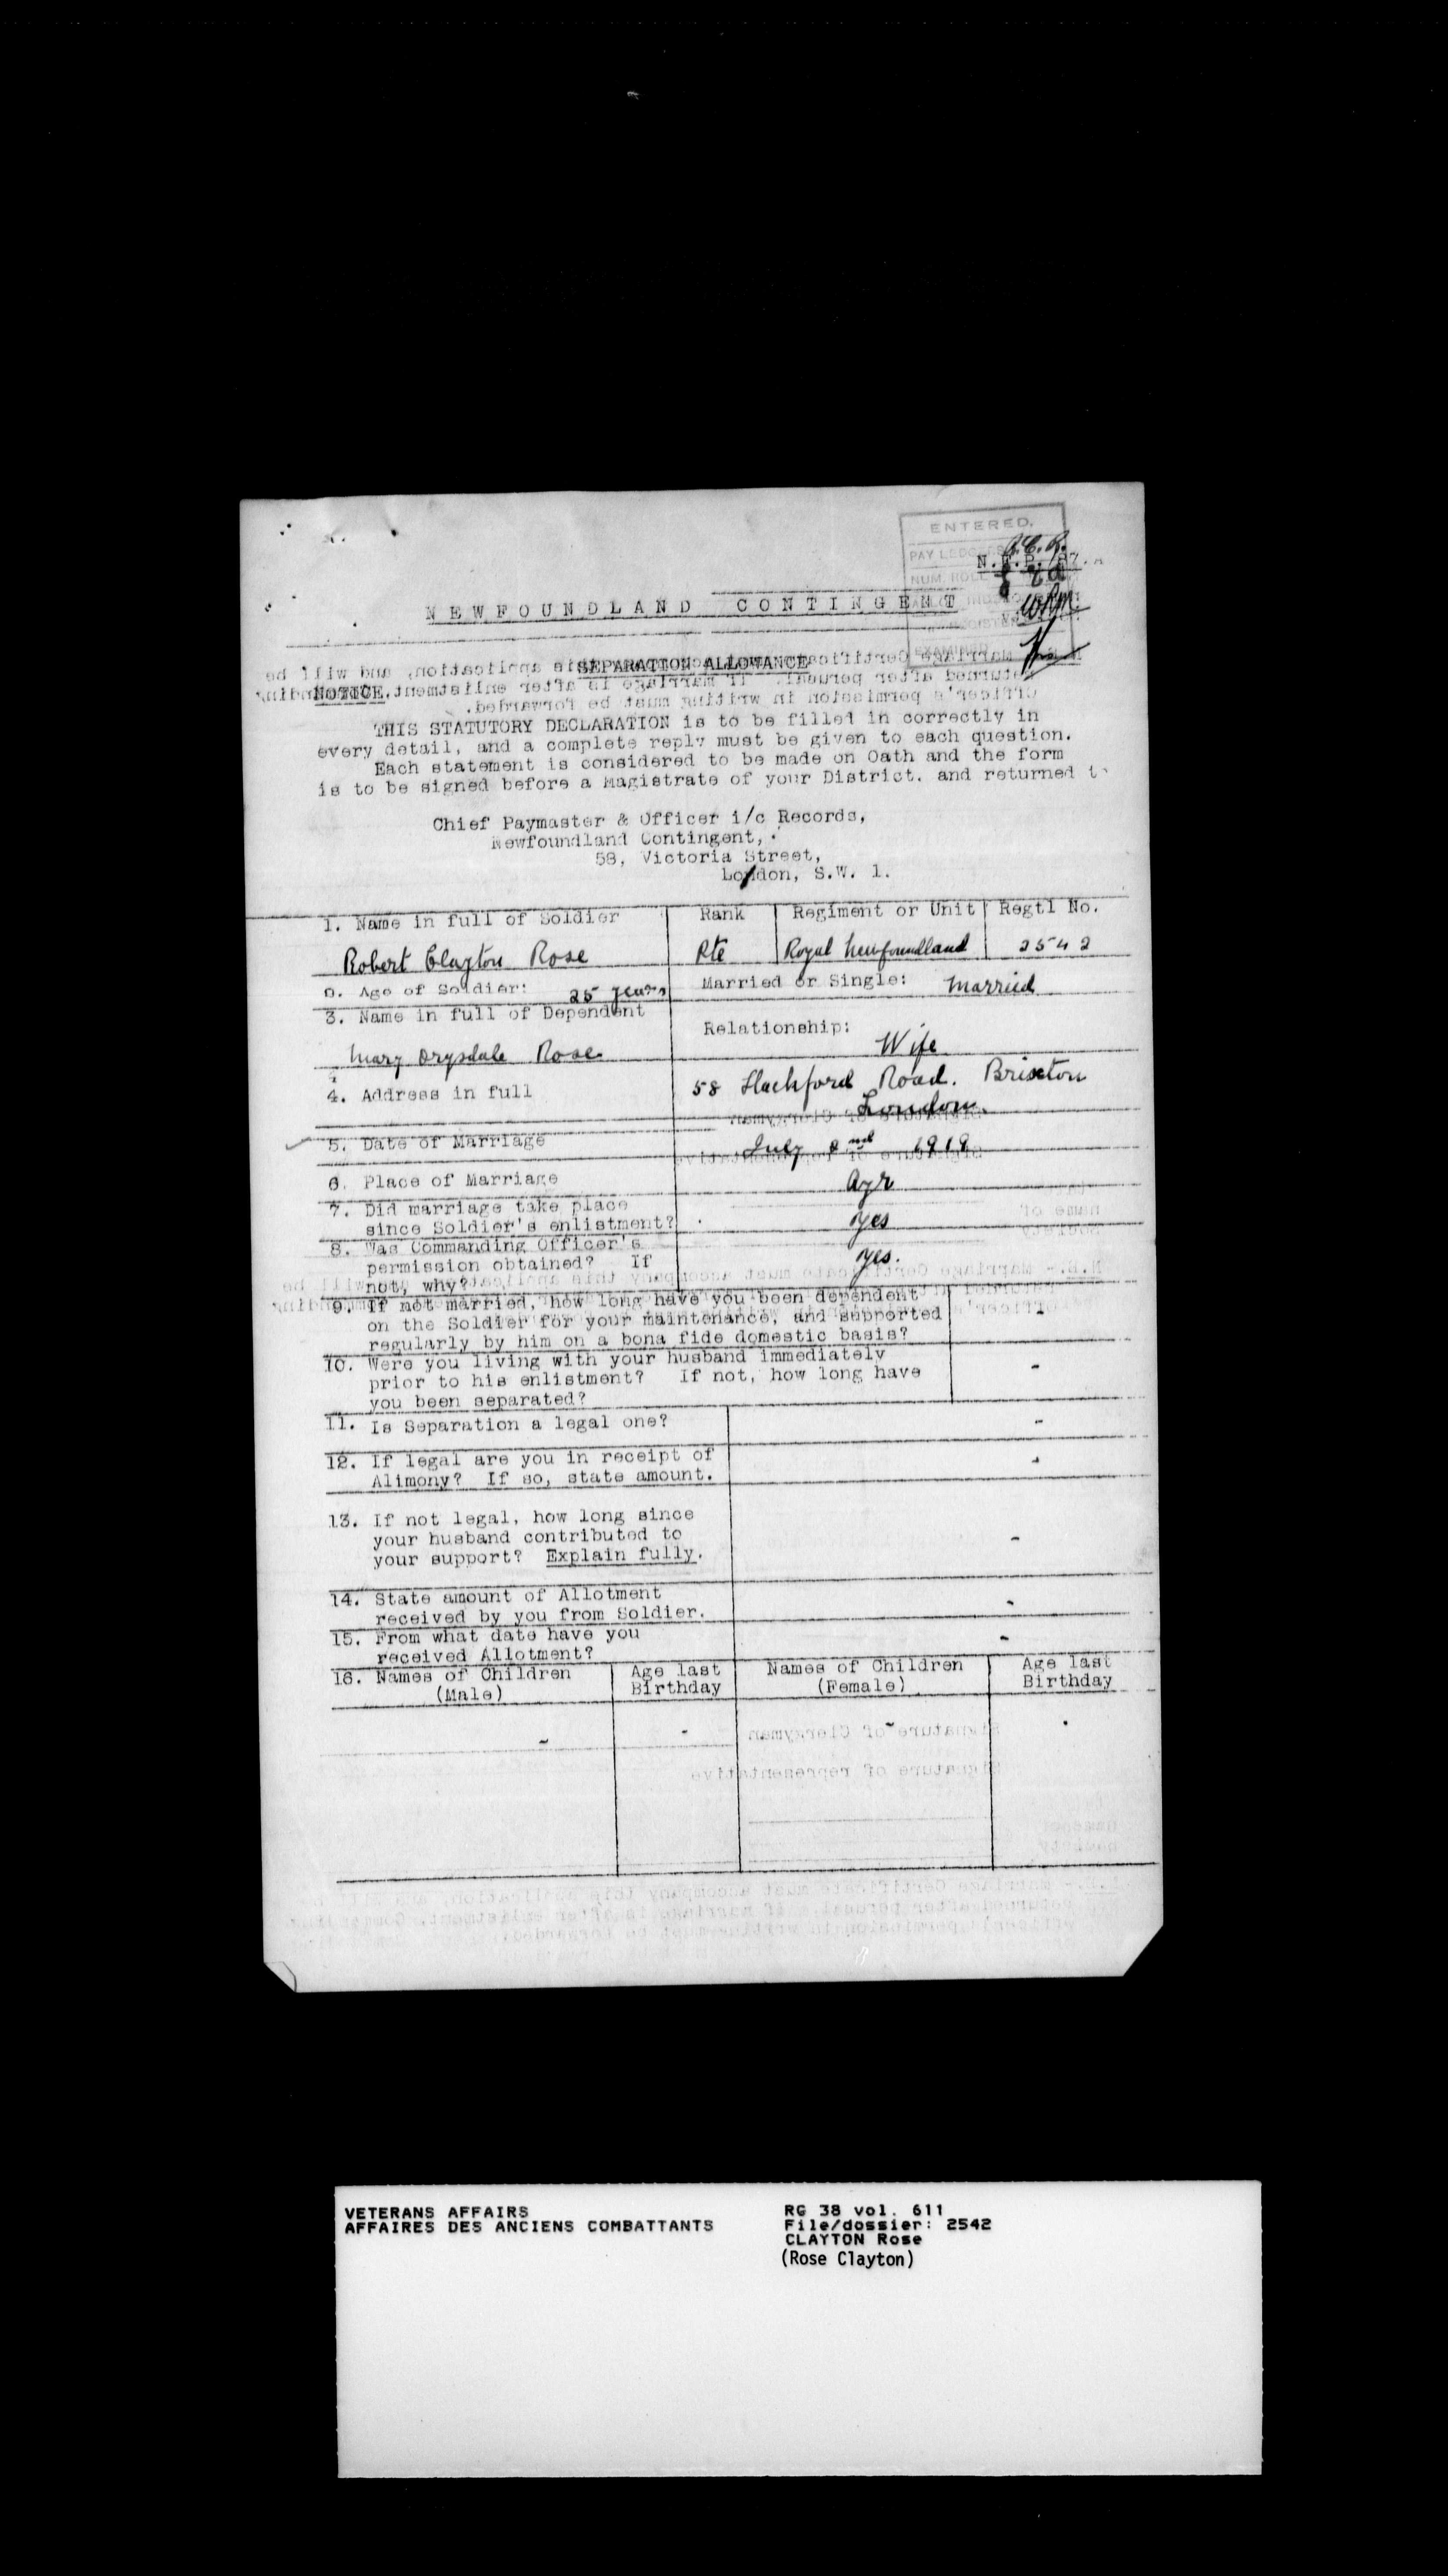 ENTERED.
PAY LEDGERS R.C.R.
N.F.P. 87.A
NUM. ROLL
NEWFOUNDLAND CONTINGENT
EXAMINED
SEPARATION ALLOWANCE
NOTICE.
THIS STATUTORY DECLARATION is to be filled in correctly in
every detail, and a complete reply must be given to each question.
Each statement is considered to be made on Oath and the form
is to be signed before a Magistrate of your District. and returned to
Chief Paymaster & Officer i/c Records,
Newfoundland Contingent,
58, Victoria Street,
London, S.W. 1.
1. Name in full of Soldier Rank Regiment or Unit Regtl No.
Robert Clayton Rose Pte Royal Newfoundland 2542
2. Age of Soldier: 25 years Married or Single: Married
3. Name in full of Dependent Relationship:
Mary Drysdale Rose Wife
4. Address in full 58 Hackford Road. Brixton
London.
5. Date of Marriage July 2nd 1919
6. Place of Marriage Ayr
7. Did marriage take place
since Soldier's enlistment? yes
8. Was Commanding Officer's
permission obtained? If yes.
not, why?
9. If not married, how long have you been dependent
on the Soldier for your maintenance, and supported -
regularly by him on a bona fide domestic basis?
10. Were you living with your husband immediately
prior to his enlistment? If not, how long have -
you been separated?
11. Is Separation a legal one? -
12. If legal are you in receipt of -
Alimony? If so, state amount.
13. If not legal, how long since
your husband contributed to -
your support? Explain fully.
14. State amount of Allotment
received by you from Soldier. -
15. From what date have you -
received Allotment?
16. Names of Children Age last Names of Children Age last
(Male) Birthday (Female) Birthday
- - - -
VETERANS AFFAIRS RG 38 vol. 611
AFFAIRES DES ANCIENS COMBATTANTS File/dossier: 2542
CLAYTON Rose
(Rose Clayton)